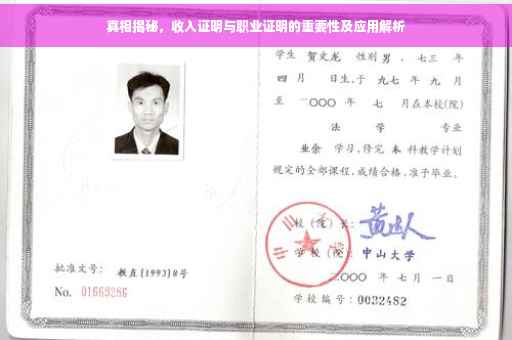 真相揭秘，收入证明与职业证明的重要性及应用解析
学生 贺文龙 性别 男 、七三 年
四 月 日生,于 九七 年 九 月
至 二〇〇〇 年 七 月在本校(院)
法 学 专业
业余 学习,修完 本 科教学计划
规定的全部课程,成绩合格,准予毕业。
校 (院) 长:
学 校 (院): 中山大学
二〇〇〇 年 七 月 一 日
学校编号: 0032482
批准文号: 教直[1993]8号
No. 01669286